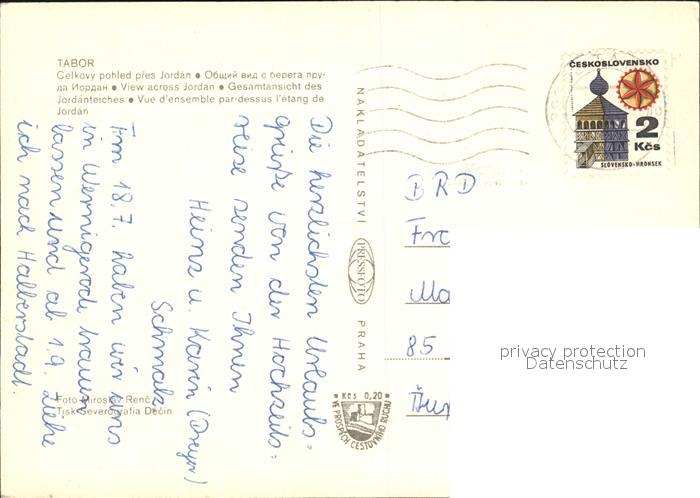 TÁBOR
Celkový pohled přes Jordán ● Общий вид с берега пру-
да Иордан ● View across Jordan ● Gesamtansicht des
Jordánteiches ● Vue d'ensemble par-dessus l'étang de
Jordán
Die herzlichsten Urlaubs=
grüße von der Hochzeits=
reise senden Ihnen
Heinz u. Karin (Dreyer)
Schmalz
Am 18.7. haben wir uns
in Wernigerode trauen
lassen und ab 1.9. ziehe
ich nach Halberstadt.
Foto Miroslav Renč
Tisk Severografia Děčín
NAKLADATELSTVÍ
PRESSFOTO
PRAHA
Kčs 0,20
VE PROSPĚCH CESTOVNÍHO RUCHU
ČESKOSLOVENSKO
2
Kčs
SLOVENSKO-HRONSEK
BRD
85
privacy protection
Datenschutz